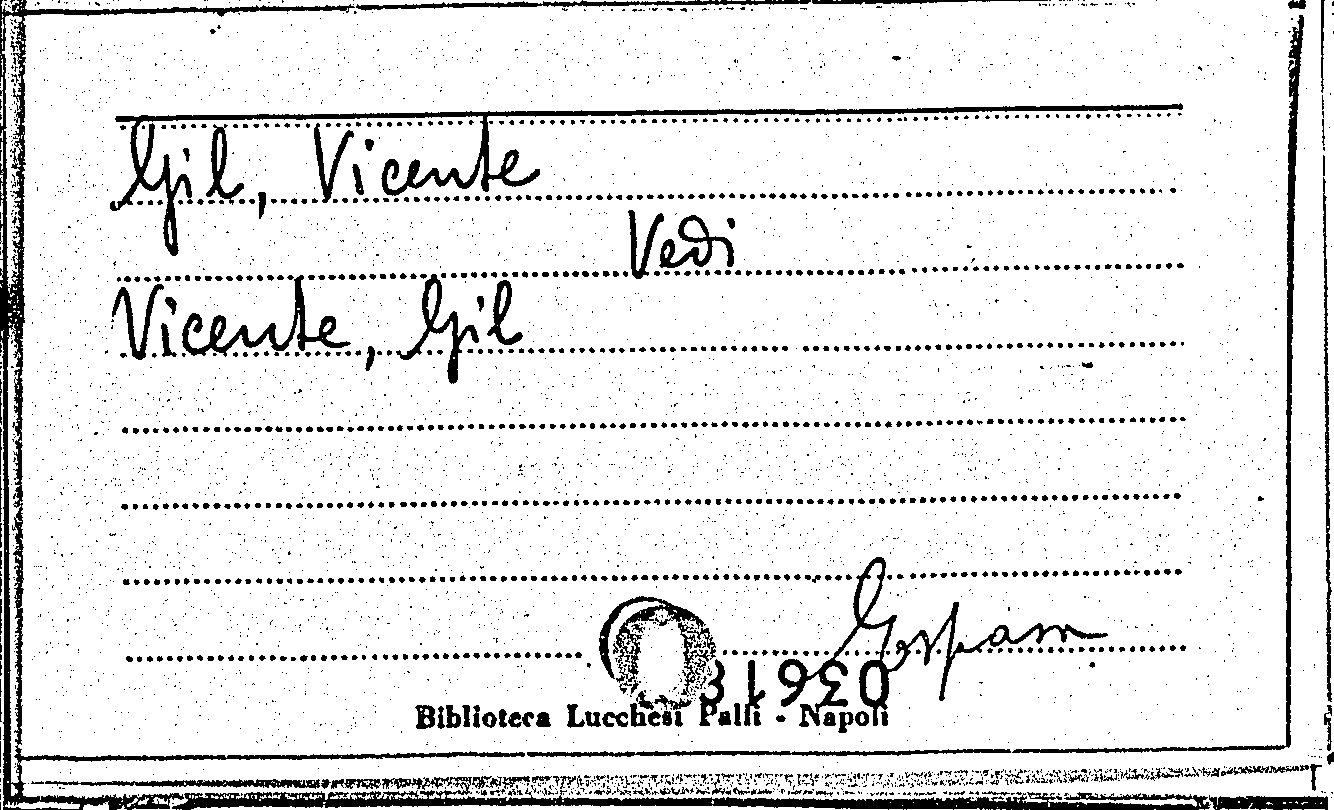 Gil, Vicente
Vedi
Vicente, Gil
Biblioteca Lucchesi Palli - Napoli